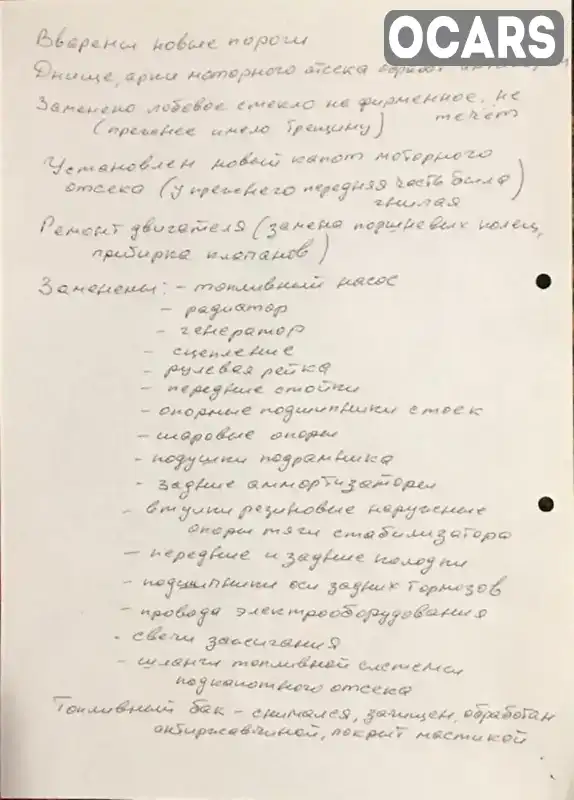 OCARS
Вварены новые пороги
Днище, арки моторного отсека
Заменено лобовое стекло не фирменное, не
(прежнее имело трещину) течёт
Установлен новый капот моторного
отсека (у прежнего передняя часть была
гнилая)
Ремонт двигателя (замена поршневых колец,
прибирка клапанов)
Заменены: - топливный насос
- радиатор
- генератор
- сцепление
- рулевая рейка
- передние стойки
- опорные подшипники стоек
- шаровые опоры
- подушки подрамника
- задние аммортизаторы
- втулки резиновые наружные
опоры тяги стабилизатора
- передние и задние колодки
- подшипники оси задних тормозов
- провода электрооборудования
- свечи зажигания
- шланги топливной системы
подкапотного отсека
Топливный бак - снимался, зачищен, обработан
антиржавчиной, покрыт мастикой